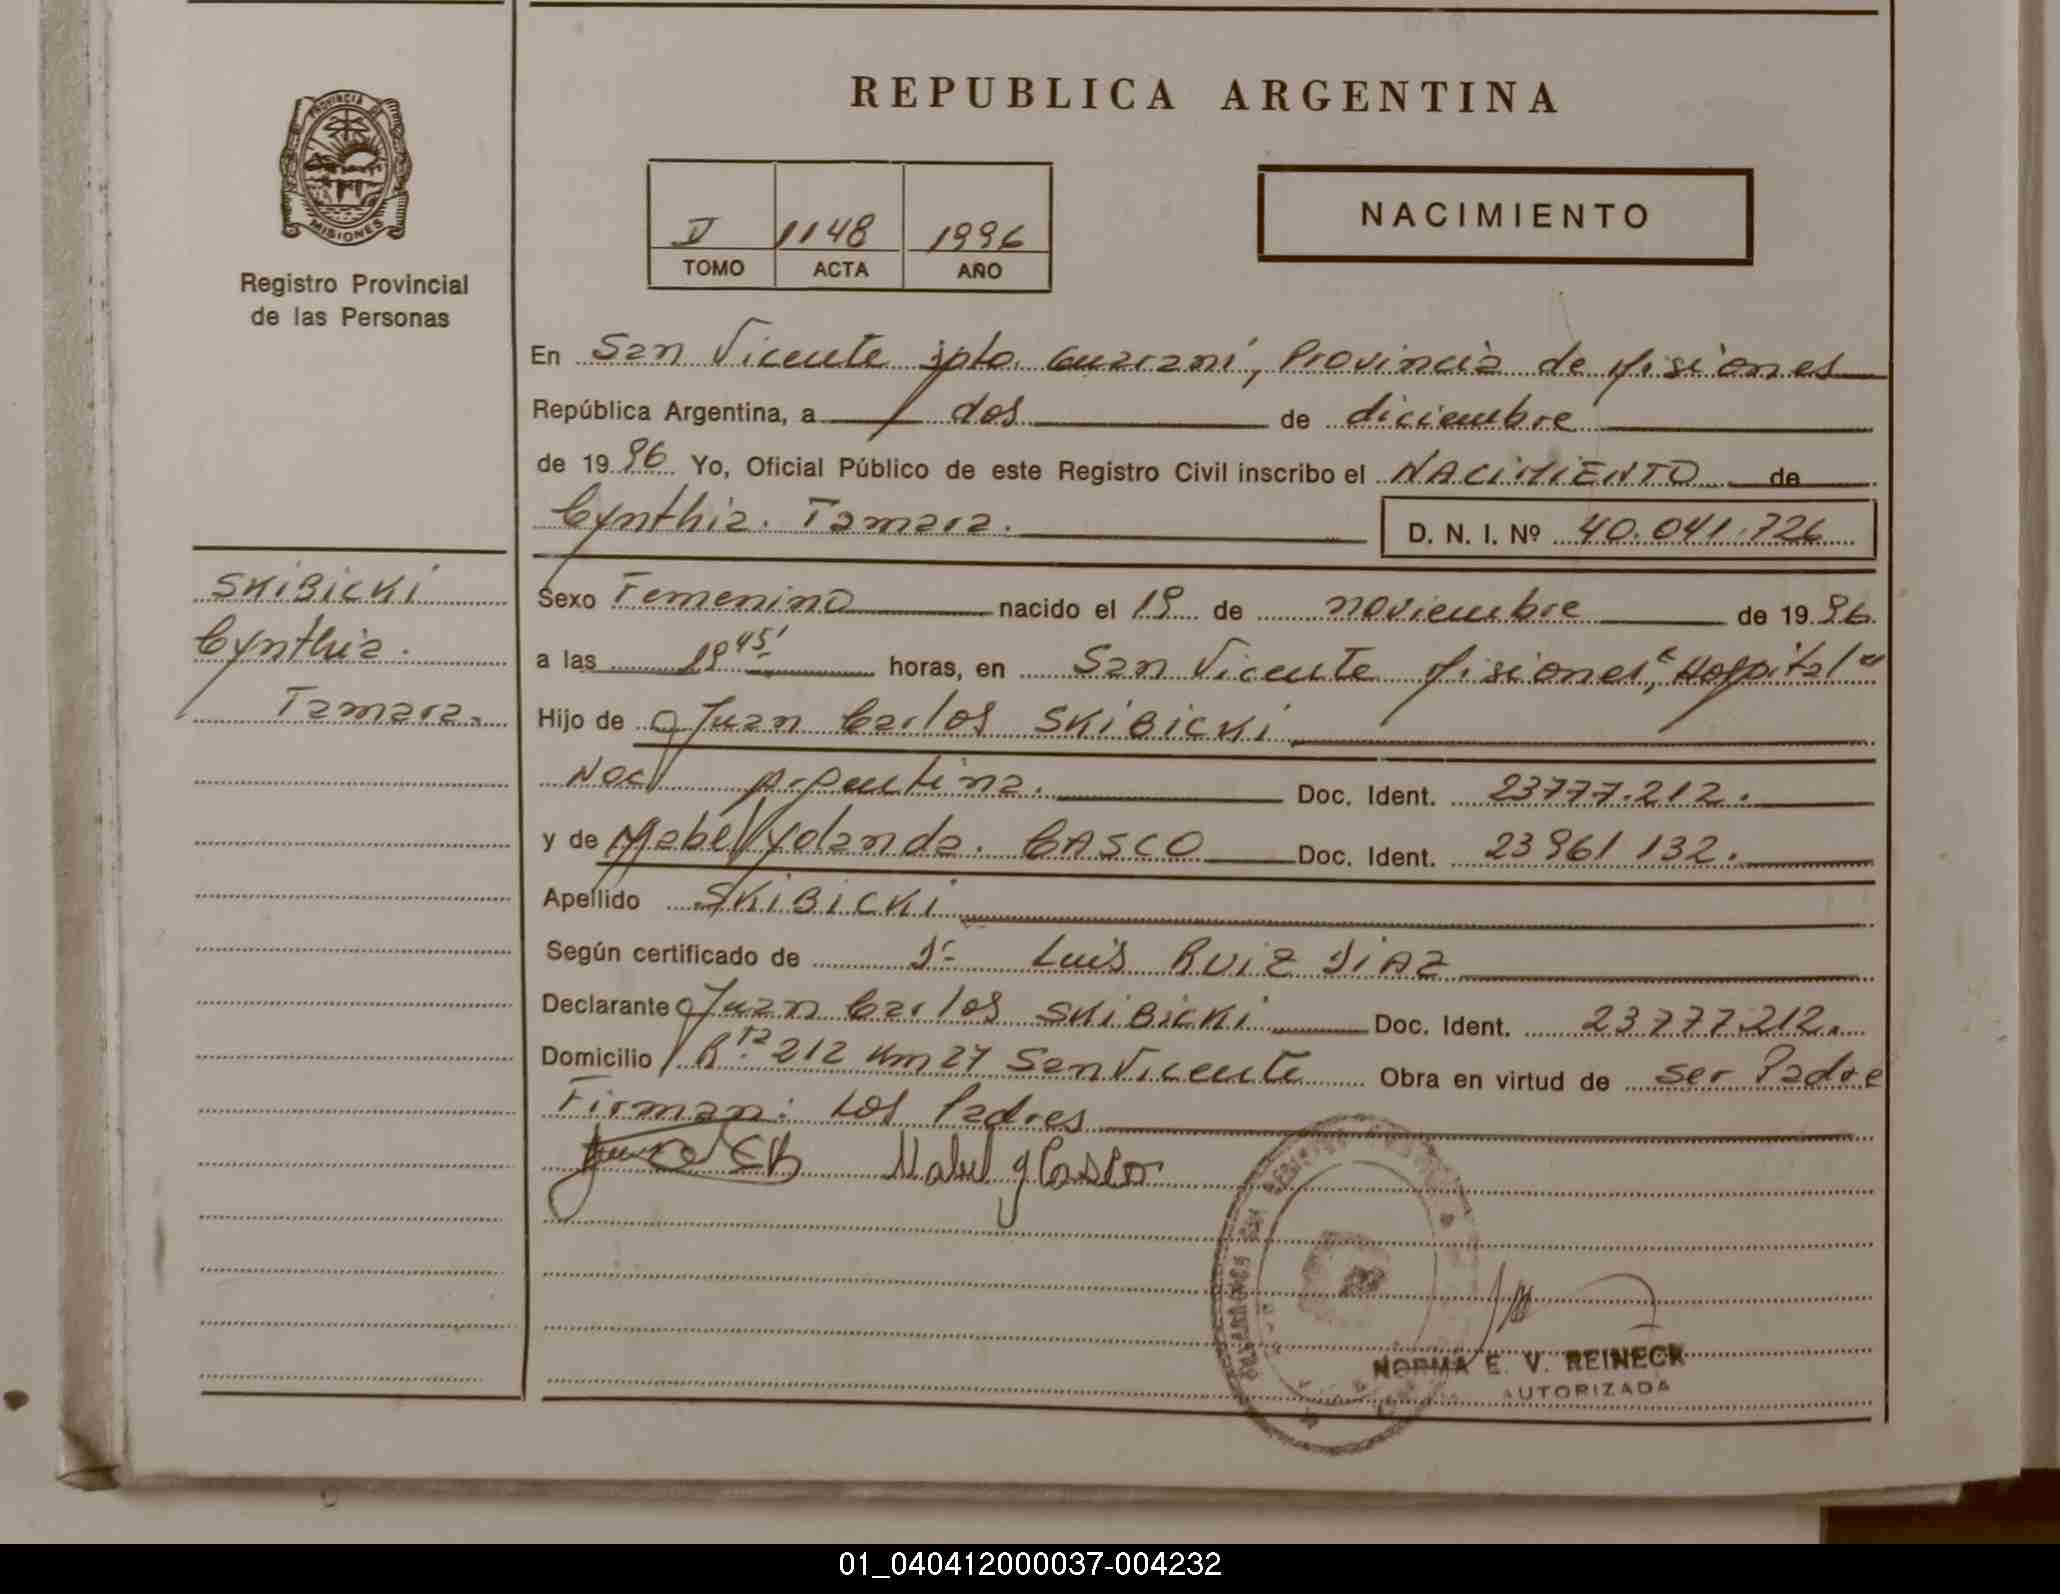 REPUBLICA ARGENTINA
PROVINCIA DE
MISIONES
Registro Provincial
de las Personas
1148 1996
TOMO ACTA AÑO
NACIMIENTO
En San Vicente Dpto. Guaraní, Provincia de Misiones
República Argentina, a dos de diciembre
de 1996 Yo, Oficial Público de este Registro Civil inscribo el NACIMIENTO de
Cynthia. Tamara.
D. N. I. Nº 40.041.726
SKIBICKI
Cynthia.
Tamara.
Sexo Femenino nacido el 19 de noviembre de 1996
a las 19 45' horas, en San Vicente Misiones, "Hospital"
Hijo de Juan Carlos SKIBICKI
Nac Argentina. Doc. Ident. 23777.212.
y de Mabel Yolanda. CASCO Doc. Ident. 23961132.
Apellido SKIBICKI
Según certificado de Dr Luis RUIZ DIAZ
Declarante Juan Carlos SKIBICKI Doc. Ident. 23777212.
Domicilio Rta. 212 Km 27 San Vicente Obra en virtud de ser Padre
Firman: Los Padres
Mabel y Casco
NORMA E. V. REINECK
AUTORIZADA
01_040412000037-004232